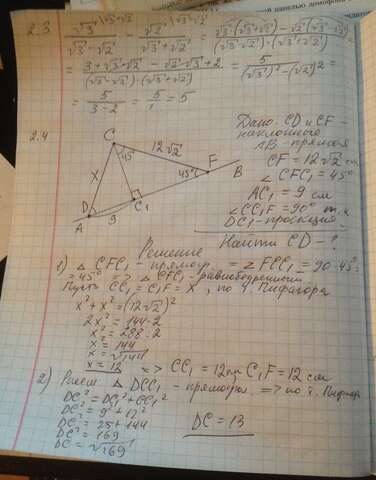 2.3 √3^{\√3+√2} / (√3 - √2) - √2^{\√3-√2} / (√3 + √2) = (√3·(√3+√2) - √2(√3-√2)) / ((√3-√2)·(√3+√2)) =
= (3 + √3·√2 - √2·√3 + 2) / ((√3-√2)·(√3+√2)) = 5 / ((√3)² - (√2)²) =
= 5 / (3-2) = 5/1 = 5
2.4
Дано: CD и CF -
наклонные
AB - прямая
CF = 12√2 см
∠CFC₁ = 45°
AC₁ = 9 см
∠CC₁F = 90° т.к.
DC₁ - проекция
Найти CD - ?
C
45
12√2
X
F
45°
B
D
C₁
A
9
Решение
1) △ CFC₁ - прямоуг. = ∠FCC₁ = 90-45°
= 45° => △ CFC₁ - равнобедренный
Пусть CC₁ = C₁F = X, по т. Пифагора
x² + x² = (12√2)²
2x² = 144·2
x² = 288:2
x² = 144
x = √144
x = 12 => CC₁ = 12 см C₁F = 12 см
2) Рассм △ DCC₁ - прямоуг. => по т. Пифаг
DC² = DC₁² + CC₁²
DC² = 9² + 12²
DC² = 25 + 144
DC² = 169
DC = √169
DC = 13